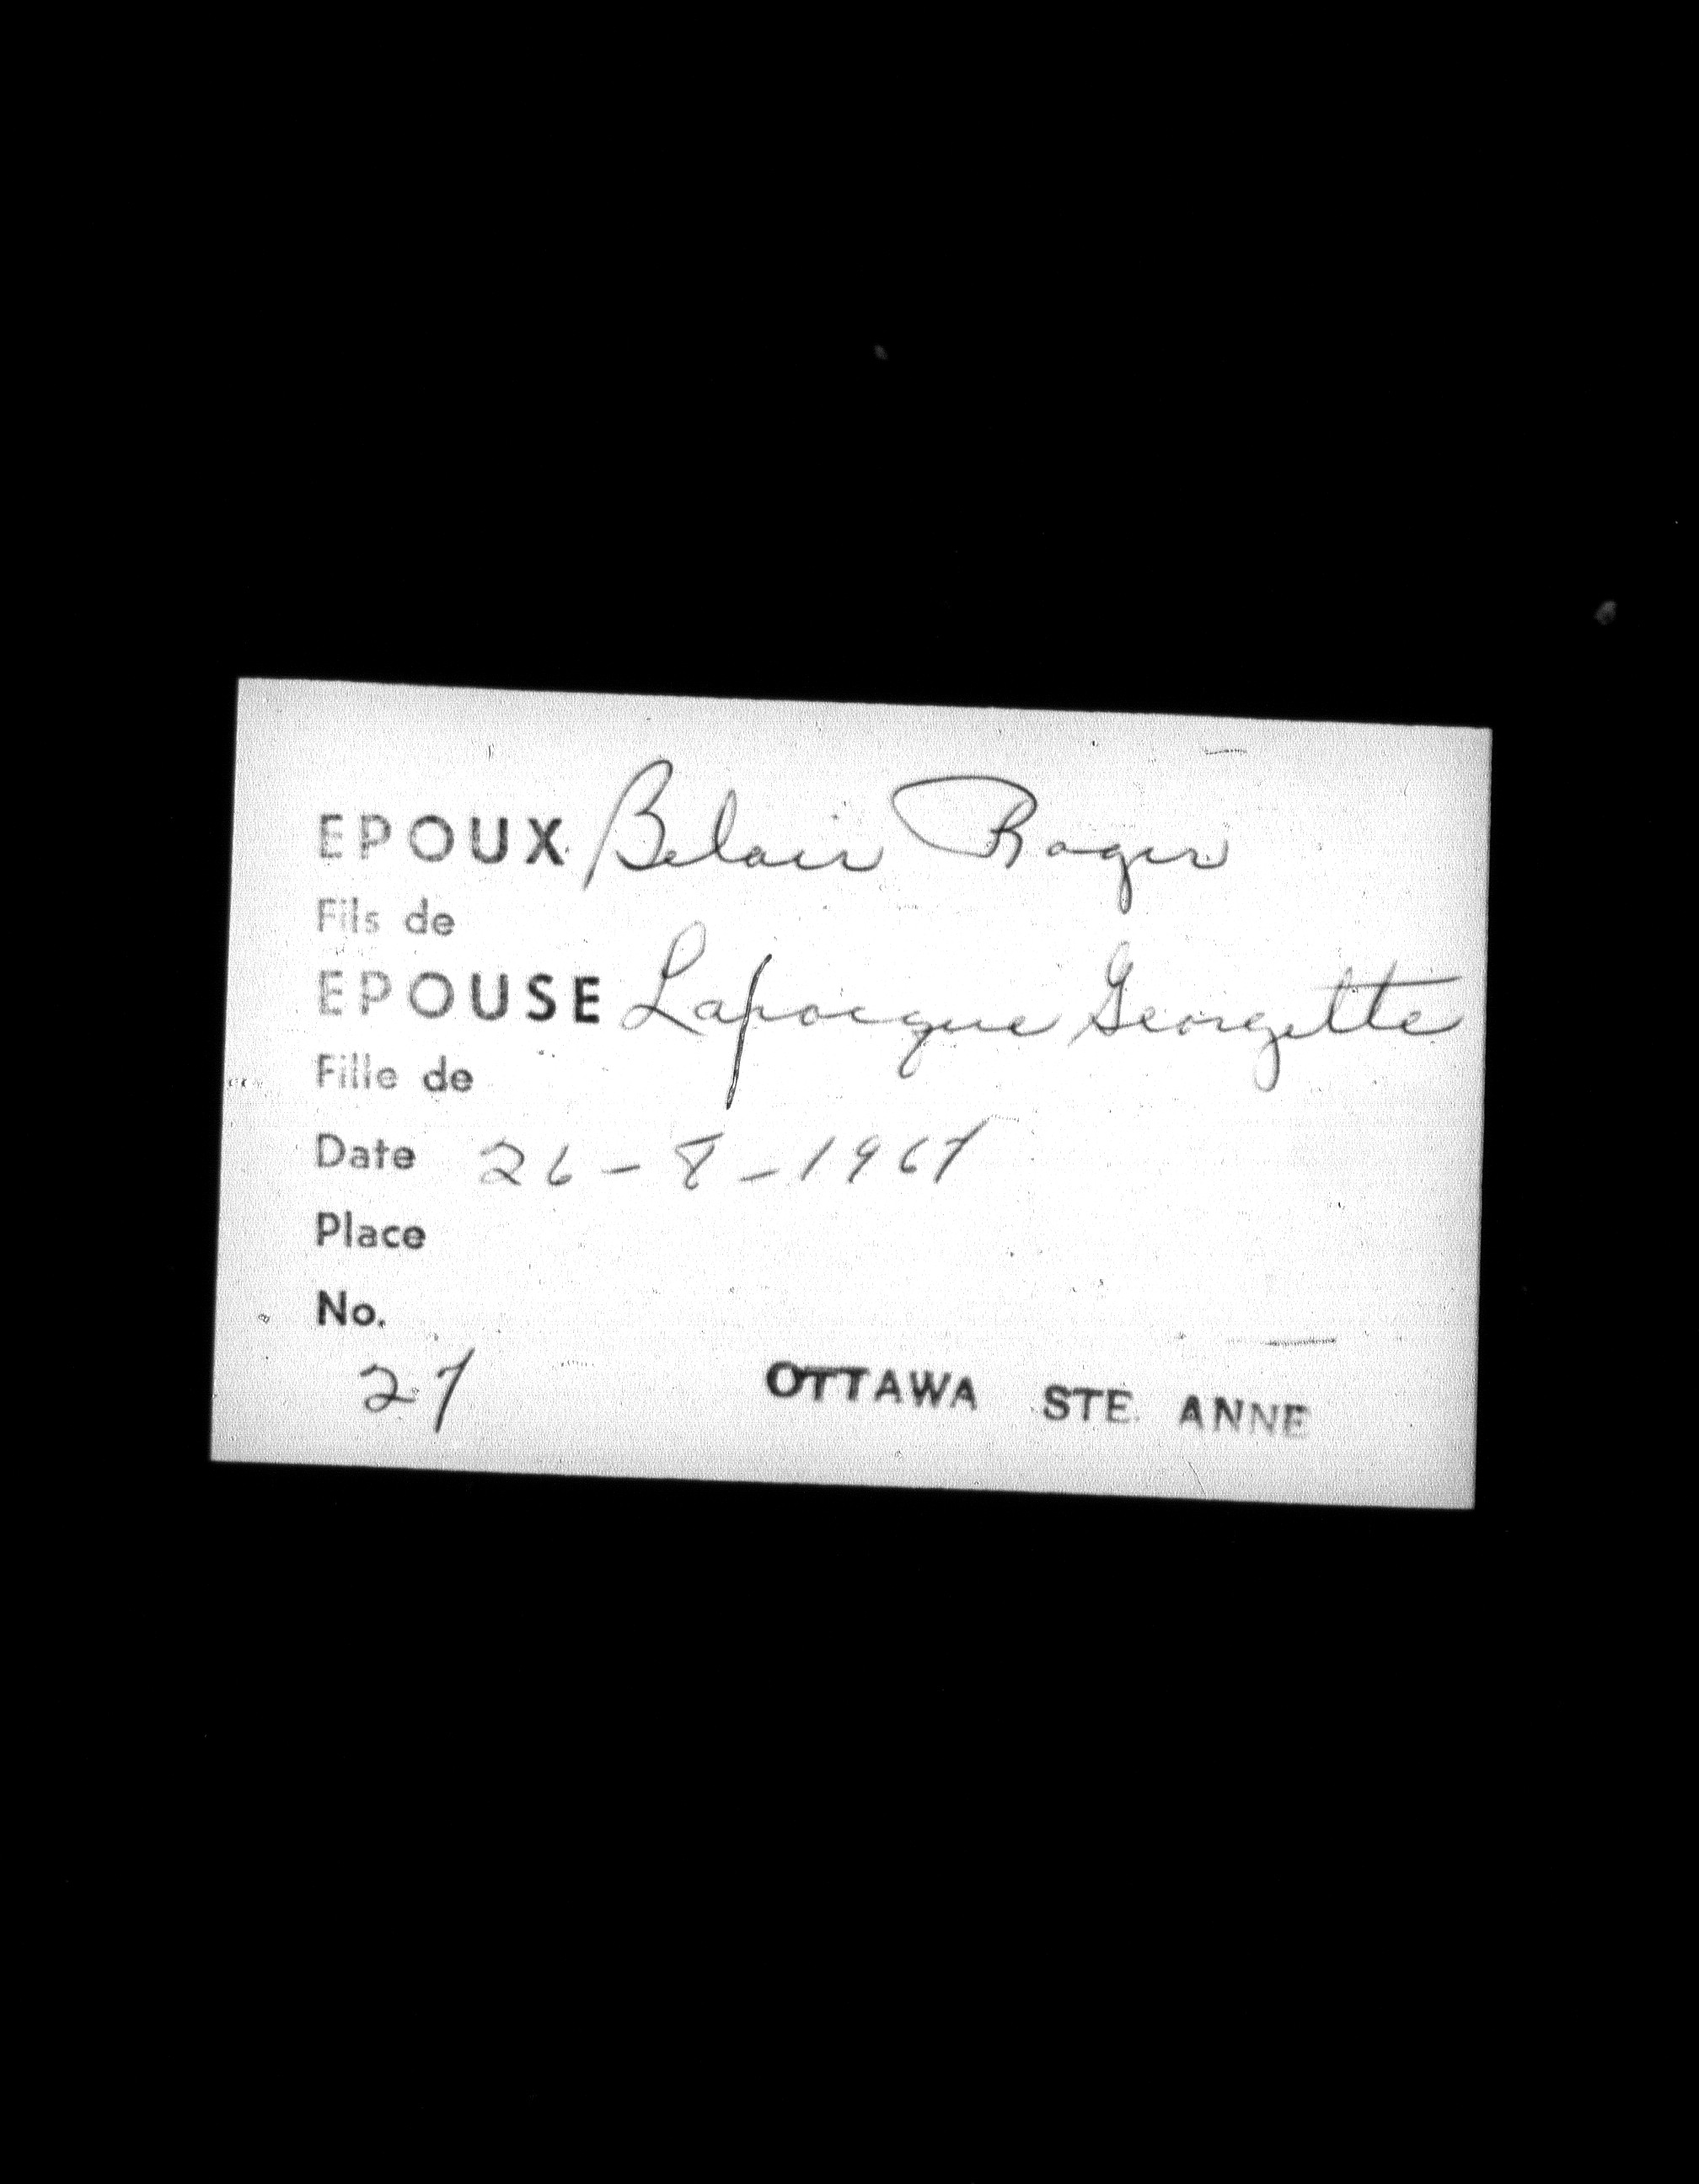 EPOUX Belair Roger
Fils de
EPOUSE Larocque Georgette
Fille de
Date 26-8-1967
Place
No.
27 OTTAWA STE. ANNE